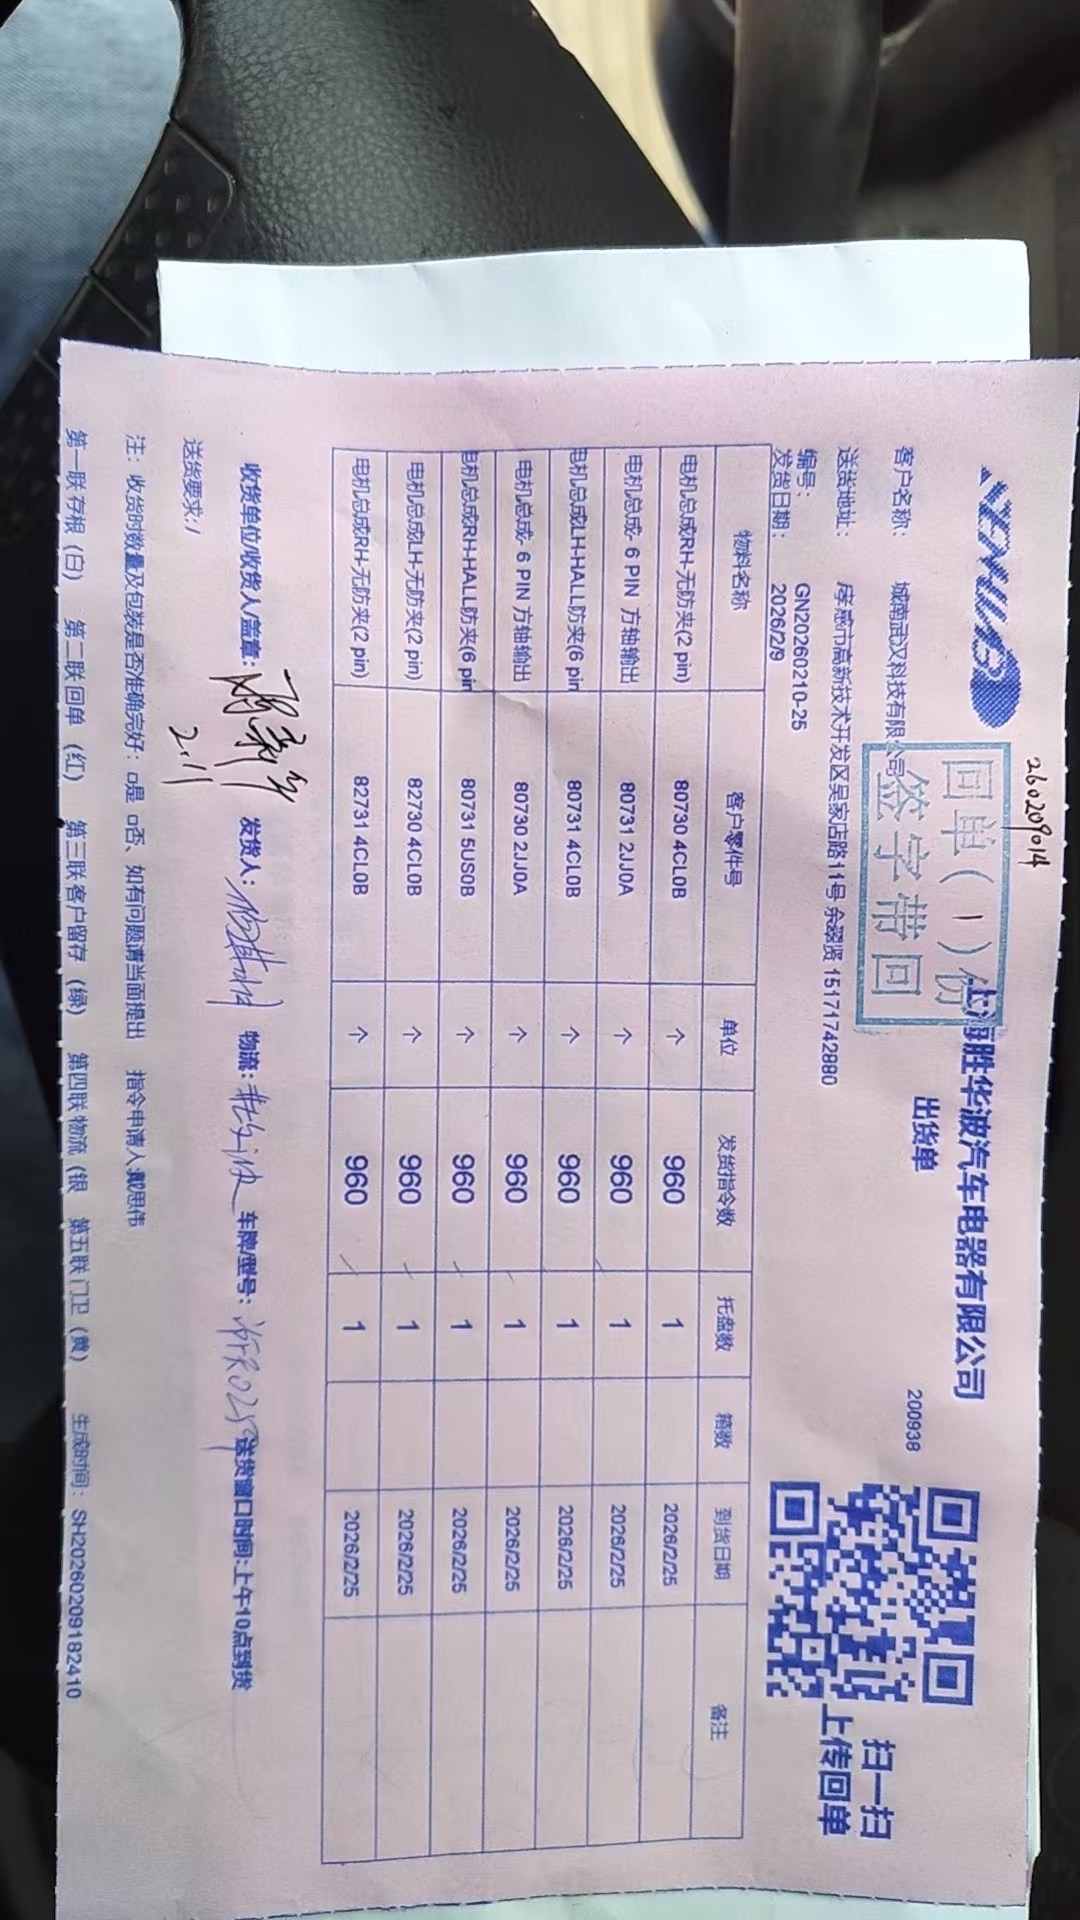 260209014
SHB
回单(1)份
签字带回
上海胜华波汽车电器有限公司
出货单
200938
扫一扫
上传回单
客户名称: 城南武汉科技有限公司
送货地址: 孝感市高新技术开发区吴家店路11号 余翠贤 15171742880
编号: GN20260210-25
发货日期: 2026/2/9
物料名称 客户零件号 单位 发货指令数 托盘数 箱数 到货日期 备注
电机总成RH-无防夹(2 pin) 80730 4CL0B 个 960 1 2026/2/25
电机总成- 6 PIN 方轴输出 80731 2JJ0A 个 960 1 2026/2/25
电机总成LH-HALL防夹(6 pin 80731 4CL0B 个 960 1 2026/2/25
电机总成- 6 PIN 方轴输出 80730 2JJ0A 个 960 1 2026/2/25
电机总成RH-HALL防夹(6 pin 80731 5US0B 个 960 1 2026/2/25
电机总成LH-无防夹(2 pin) 82730 4CL0B 个 960 1 2026/2/25
电机总成RH-无防夹(2 pin) 82731 4CL0B 个 960 1 2026/2/25
收货单位/收货人/盖章: 发货人: 物流: 车牌/型号: 送货窗口时间:上午10点到货
2.11
送货要求:/
注: 收货时数量及包装是否准确完好: □是 □否、如有问题请当面提出 指令申请人:戴思伟
第一联存根 (白) 第二联回单 (红) 第三联客户留存 (绿) 第四联物流 (银 第五联门卫 (黄) 生成时间: SH20260209182410